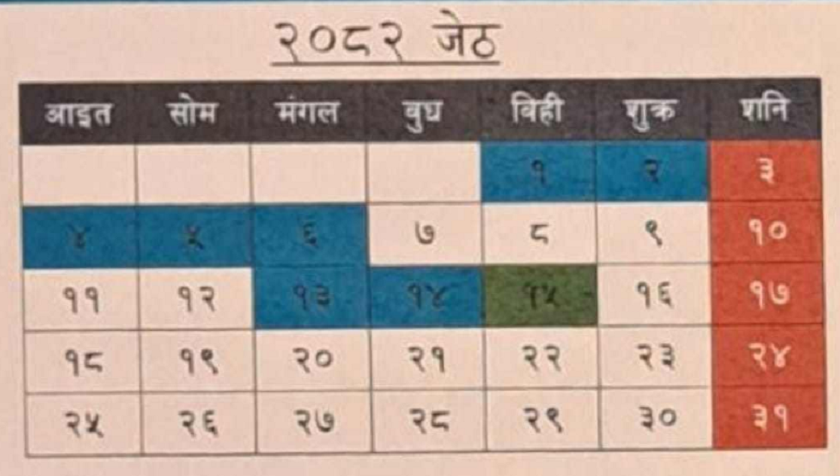 २०८२ जेठ
आइत सोम मंगल बुध बिही शुक्र शनि
१ २ ३
४ ५ ६ ७ ८ ९ १०
११ १२ १३ १४ १५ १६ १७
१८ १९ २० २१ २२ २३ २४
२५ २६ २७ २८ २९ ३० ३१